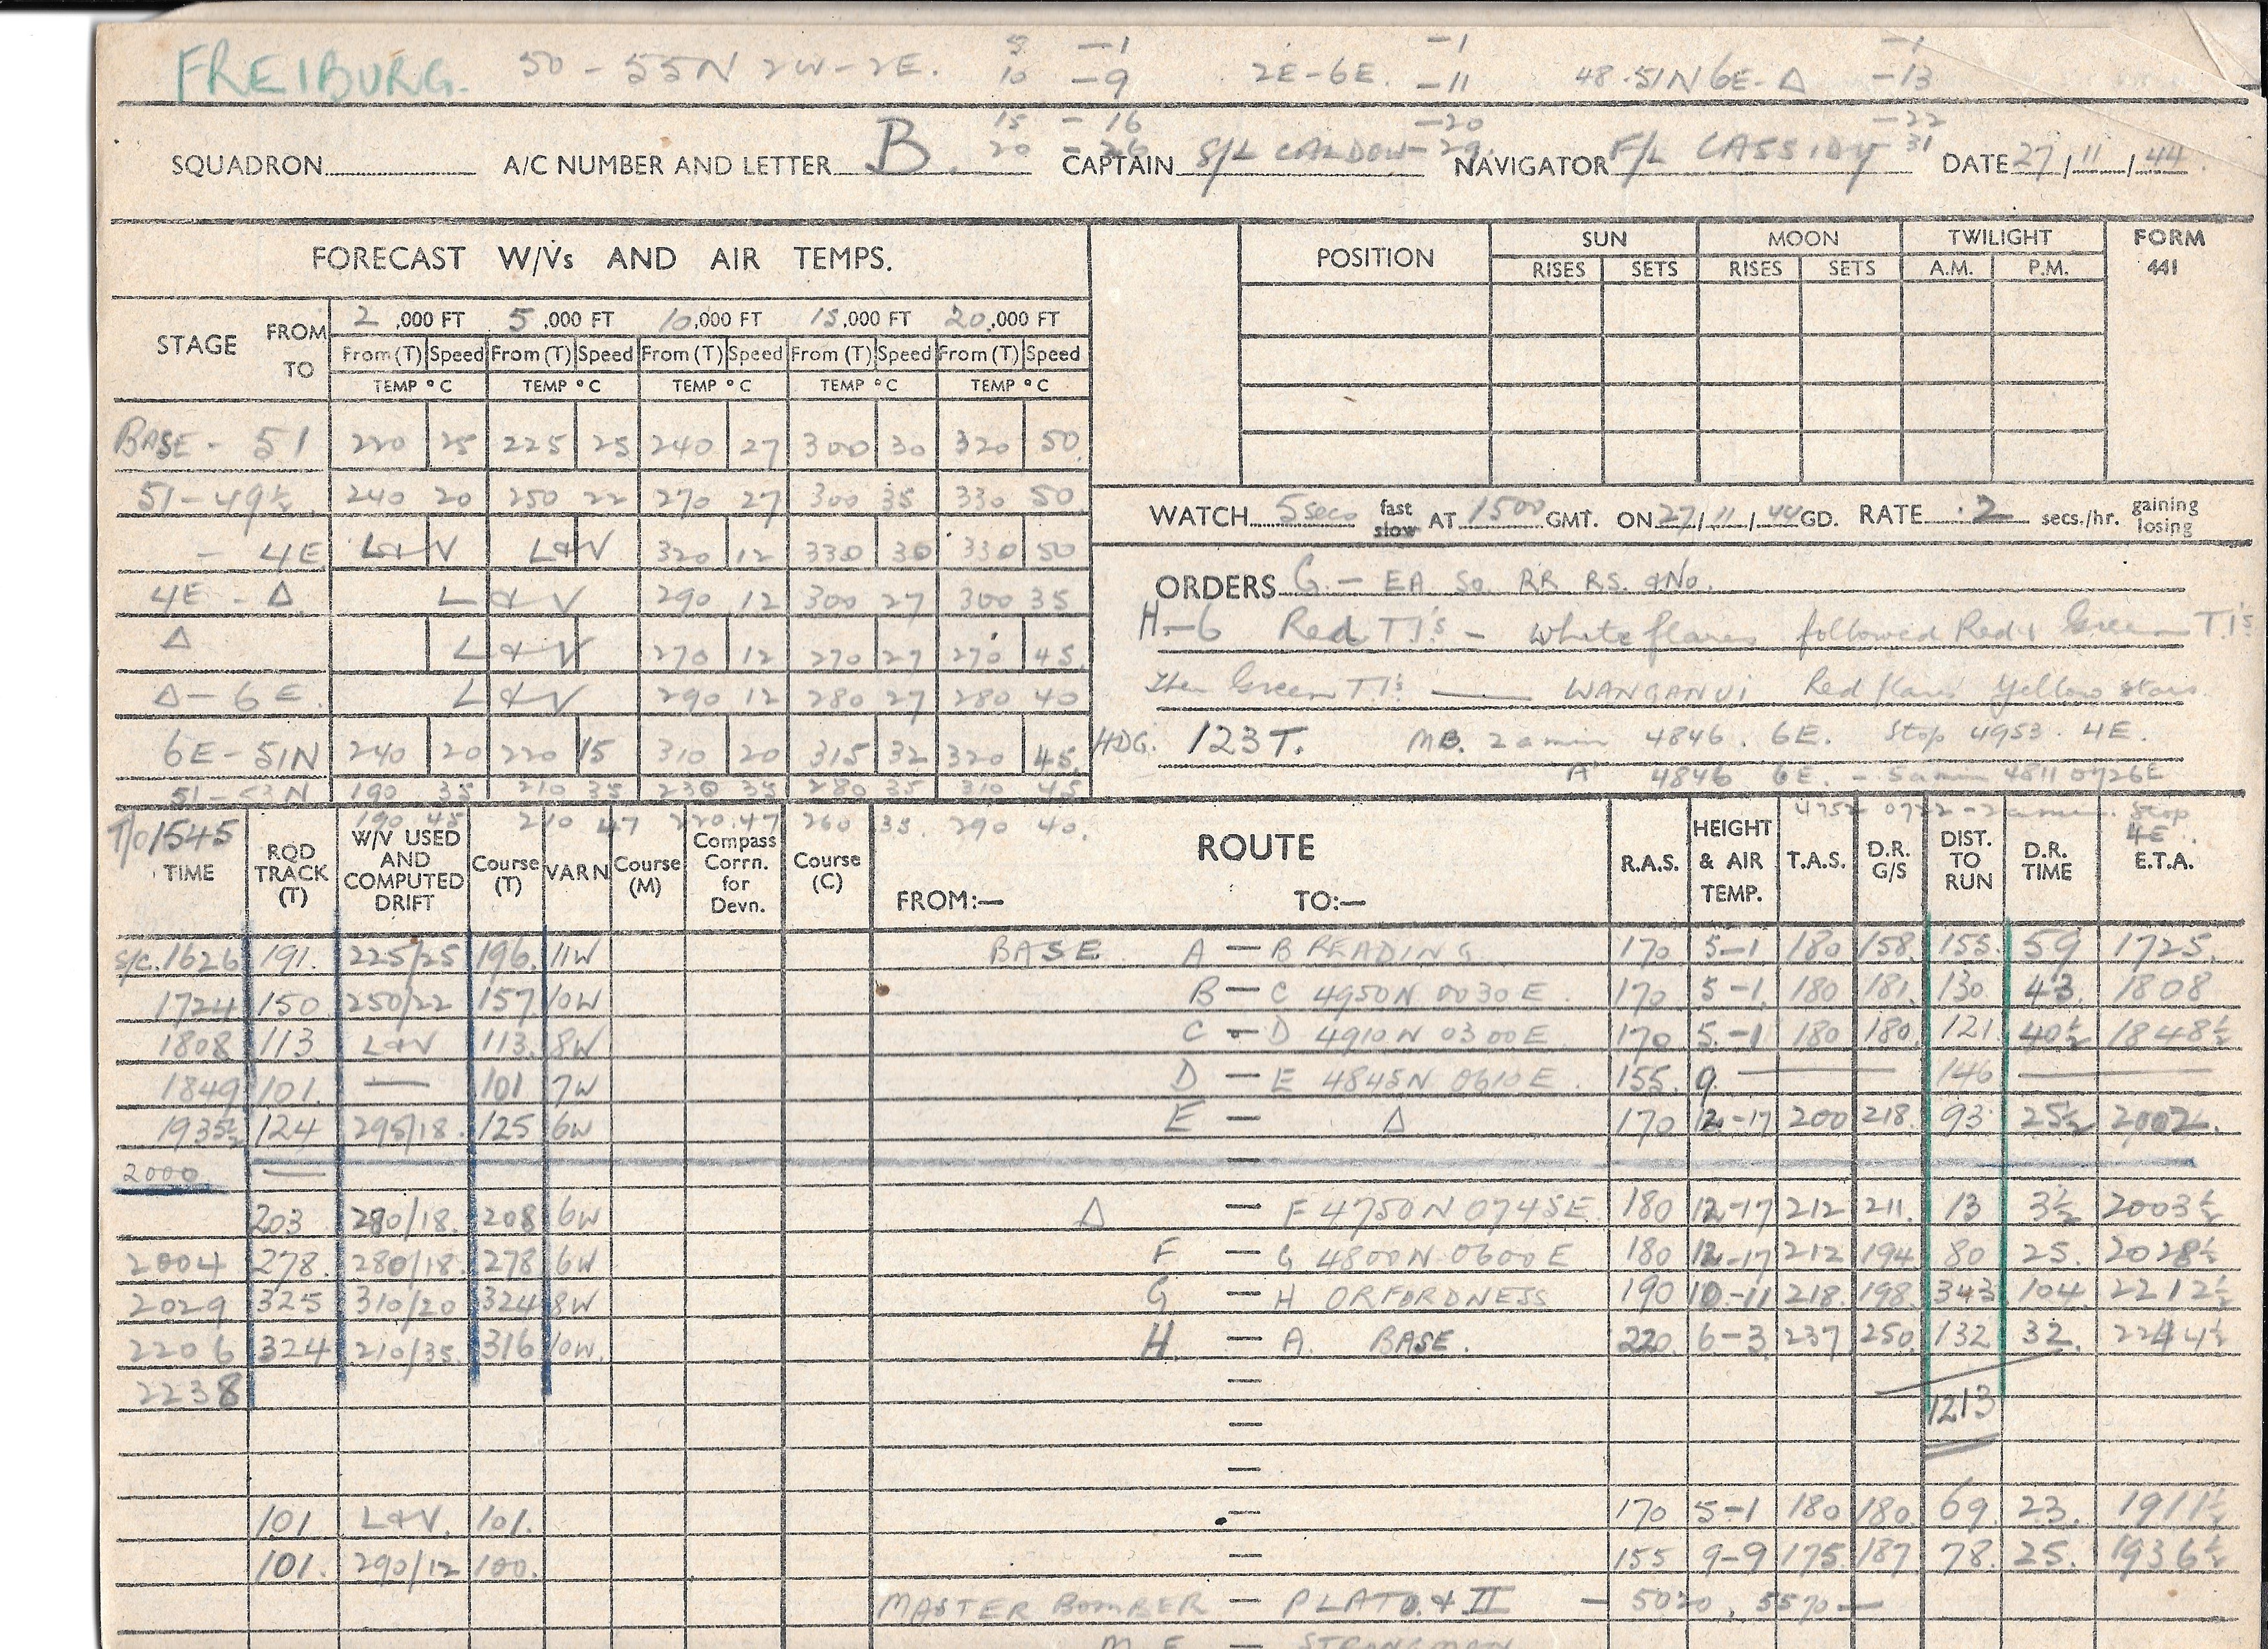 FREIBURG. 50 - 55N 2W - 2E. 5 -1 2E-6E. -1 48.51N 6E-Δ -1
10 -9 -11 -13
15 -16 -20 -22
20 -26 -29 31
SQUADRON A/C NUMBER AND LETTER B. CAPTAIN S/L CALDOW NAVIGATOR F/L CASSIDY DATE 27/11/44.
FORECAST W/Vs AND AIR TEMPS.
POSITION SUN MOON TWILIGHT FORM 441
RISES SETS RISES SETS A.M. P.M.
STAGE FROM TO 2,000 FT 5,000 FT 10,000 FT 15,000 FT 20,000 FT
From (T) Speed From (T) Speed From (T) Speed From (T) Speed From (T) Speed
TEMP °C TEMP °C TEMP °C TEMP °C TEMP °C
BASE - 51 220 25 225 25 240 27 300 30 320 50.
51-49½ 240 20 250 22 270 27 300 35 330 50
- 4E L&V L&V 320 12 330 30 330 50
4E - Δ L & V 290 12 300 27 300 35
Δ L & V 270 12 270 27 270 45
Δ - 6E. L & V 290 12 280 27 280 40
6E-51N 240 20 220 15 310 20 315 32 320 45
51- N 190 35 210 35 230 35 280 35 310 45
190 45 210 47 220.47 260 35. 290 40.
WATCH 5 secs fast slow AT 1500 GMT. ON 27/11/44 GD. RATE .2 secs./hr. gaining losing
ORDERS G. - EA. So. RR RS. &No.
H-6 Red T.I's - White flares followed Red & Green T.I's
Then Green T.I's — WANGANUI Red flares Yellow stars.
HDG. 123T. MB. 2 a min 4846. 6E. Stop 4953. 4E.
A' 4846 6E. - 5 a min 4811 0726E
4752 0722 - 2 a min. Stop 4E.
T/O 1545
TIME RQD TRACK (T) W/V USED AND COMPUTED DRIFT Course (T) VARN Course (M) Compass Corrn. for Devn. Course (C) ROUTE FROM:— TO:— R.A.S. HEIGHT & AIR TEMP. T.A.S. D.R. G/S DIST. TO RUN D.R. TIME E.T.A.
S/C. 1626 191. 225/25 196. 11W BASE A — B READING 170 5-1 180 158. 155. 59 1725.
1724 150 250/22 157 10W B — C 4950N 0030E. 170 5-1. 180 181. 130 43 1808
1808 113 L&V 113. 8W C — D 4910N 0300E 170 5.-1 180 180. 121 40½ 1848½
1849 101. — 101 7W D — E 4845N 0610E. 155. 9. — 146 —
1935½ 124 295/18. 125 6W E — Δ 170 12-17 200 218. 93 25½ 2002.
2000. — —
203 280/18. 208 6W Δ — F 4750N 0745E. 180 12-17 212 211. 13 3½ 2003½
2004 278. 280/18. 278 6W F — G 4800N 0600E 180 12-17 212 194 80 25. 2028½
2029 325 310/20 324 8W G — H ORFORDNESS 190 10-11 218. 198. 343 104. 2212½
2206 324 210/35. 316 10W. H. — A. BASE. 220. 6-3 237 250. 132 32. 2244½
2238 —
— 1213
—
101 L&V. 101. — 170 5-1 180 180. 69. 23. 1911½
101. 290/12 100. — 155 9-9 175. 187 78. 25. 1936½
MASTER BOMBER — PLATO. & II - 5020. 5570 —
— STRONGMAN